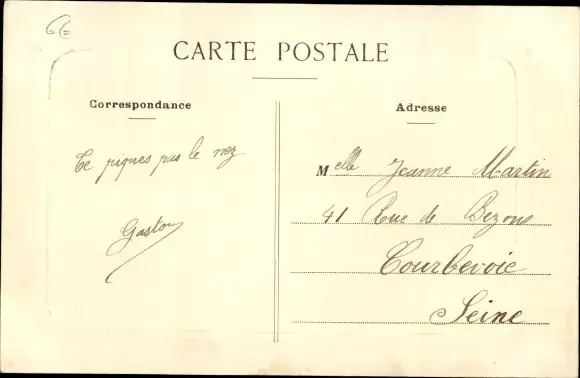 6€
CARTE POSTALE
Correspondance
Te piques pas le nez
Gaston
Adresse
Melle Jeanne Martin
41 Rue de Bezons
Courbevoie
Seine